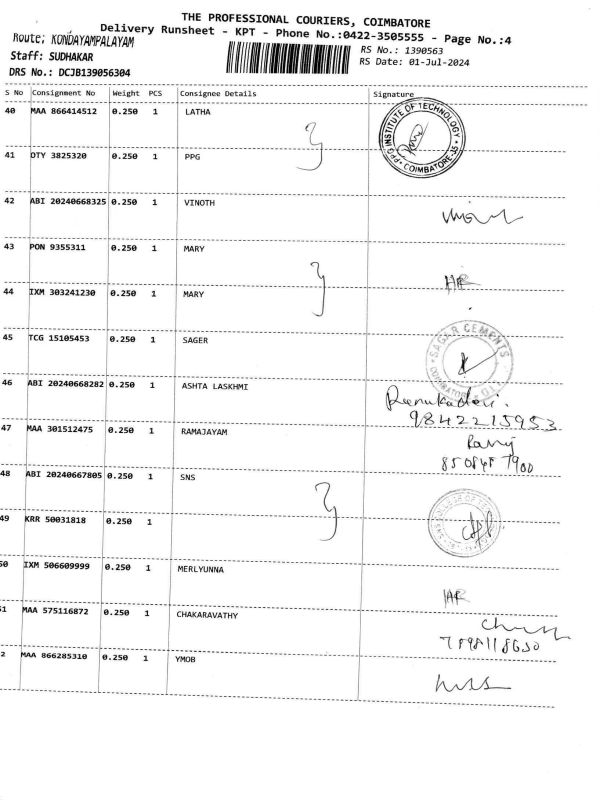 THE PROFESSIONAL COURIERS, COIMBATORE
Delivery Runsheet - KPT - Phone No.:0422-3505555 - Page No.:4
Route; KONDAYAMPALAYAM
RS No.: 1390563
Staff: SUDHAKAR
RS Date: 01-Jul-2024
DRS No.: DCJB139056304
S No Consignment No Weight PCS Consignee Details Signature
40 MAA 866414512 0.250 1 LATHA
PPG INSTITUTE OF TECHNOLOGY COIMBATORE-35
41 OTY 3825320 0.250 1 PPG
42 ABI 20240668325 0.250 1 VINOTH
43 PON 9355311 0.250 1 MARY
44 IXM 303241230 0.250 1 MARY
45 TCG 15105453 0.250 1 SAGER
SAGAR CEMENTS
46 ABI 20240668282 0.250 1 ASHTA LASKHMI
Renukadevi.
9842215953
47 MAA 301512475 0.250 1 RAMAJAYAM
48 ABI 20240667805 0.250 1 SNS
49 KRR 50031818 0.250 1
50 IXM 506609999 0.250 1 MERLYUNNA
51 MAA 575116872 0.250 1 CHAKARAVATHY
2 MAA 866285310 0.250 1 YMOB